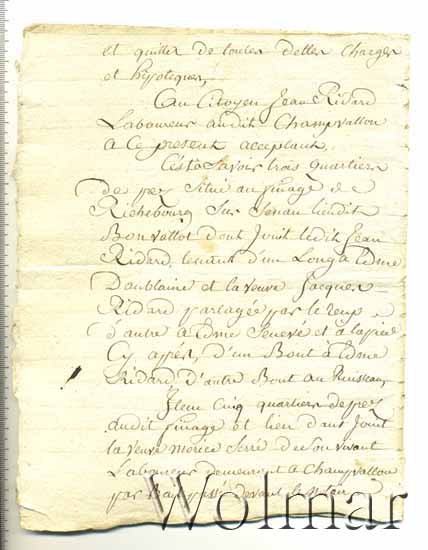 et quitte de toutes dettes charges
et hypoteques,
Au Citoyen Jean Ridard
Laboureur audit Champvallon
a Ce present acceptant,
C'est a Savoir trois quartiers
de prez situé au finage de
Richebourg sur Senan lieudit
Bonvallot dont Jouit ledit Jean
Ridard, tenant d'un Long a Edme
Daublaine et la veuve Jacques
Ridard partagée par le
d'autre a Edme et a la piece
Cy après, d'un Bout a Edme
Ridard, d'autre Bout au Ruisseau,
Item Cinq quartiers de prez
audit finage et lieu dont Jouit
la veuve morice de son vivant
Laboureur demeurant a Champvallon
par Bail passé devant le
Wolmar